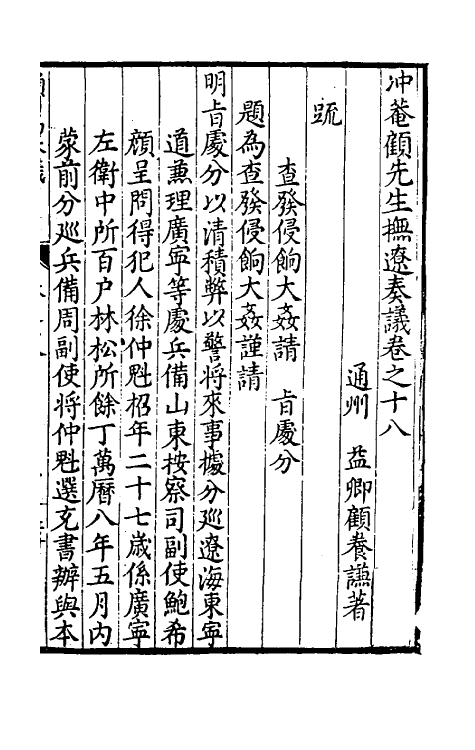 冲菴顧先生撫遼奏議卷之十八
通州　益卿顧養謙著
疏
查發侵餉大姦請　旨處分
題為查發侵餉大姦謹請
明旨處分以清積弊以警將來事據分巡遼海東寧
道兼理廣寧等處兵備山東按察司副使鮑希
顔呈問得犯人徐仲魁招年二十七歲係廣寧
左衛中所百户林松所餘丁萬曆八年五月內
蒙前分巡兵備周副使將仲魁選充書辦與本